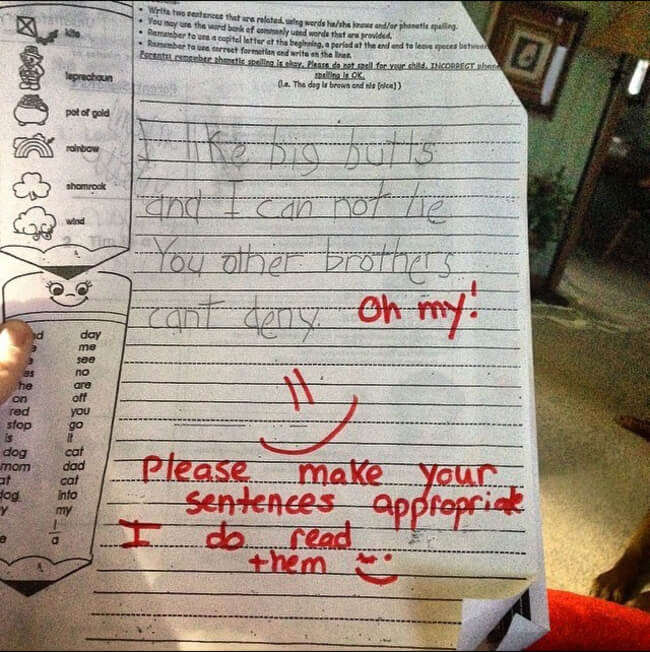 • Write two sentences that are related, using words he/she knows and/or phonetic spelling.
• You may use the word bank of commonly used words that are provided.
• Remember to use a capital letter at the beginning, a period at the end and to leave spaces between
• Remember to use correct formation and write on the lines.
Parents: remember phonetic spelling is okay. Please do not spell for your child. INCORRECT
spelling is OK.
(i.e. The dog is brown and nis [nice] )
kite
leprechaun
pot of gold
rainbow
shamrock
wind
I like big butts
and I can not lie
You other brothers
cant deny. Oh my!
Please make your
sentences appropriate
I do read
them
day
me
see
as no
he are
on off
red you
stop go
is it
dog cat
mom dad
at cat
dog into
y my
I
e a